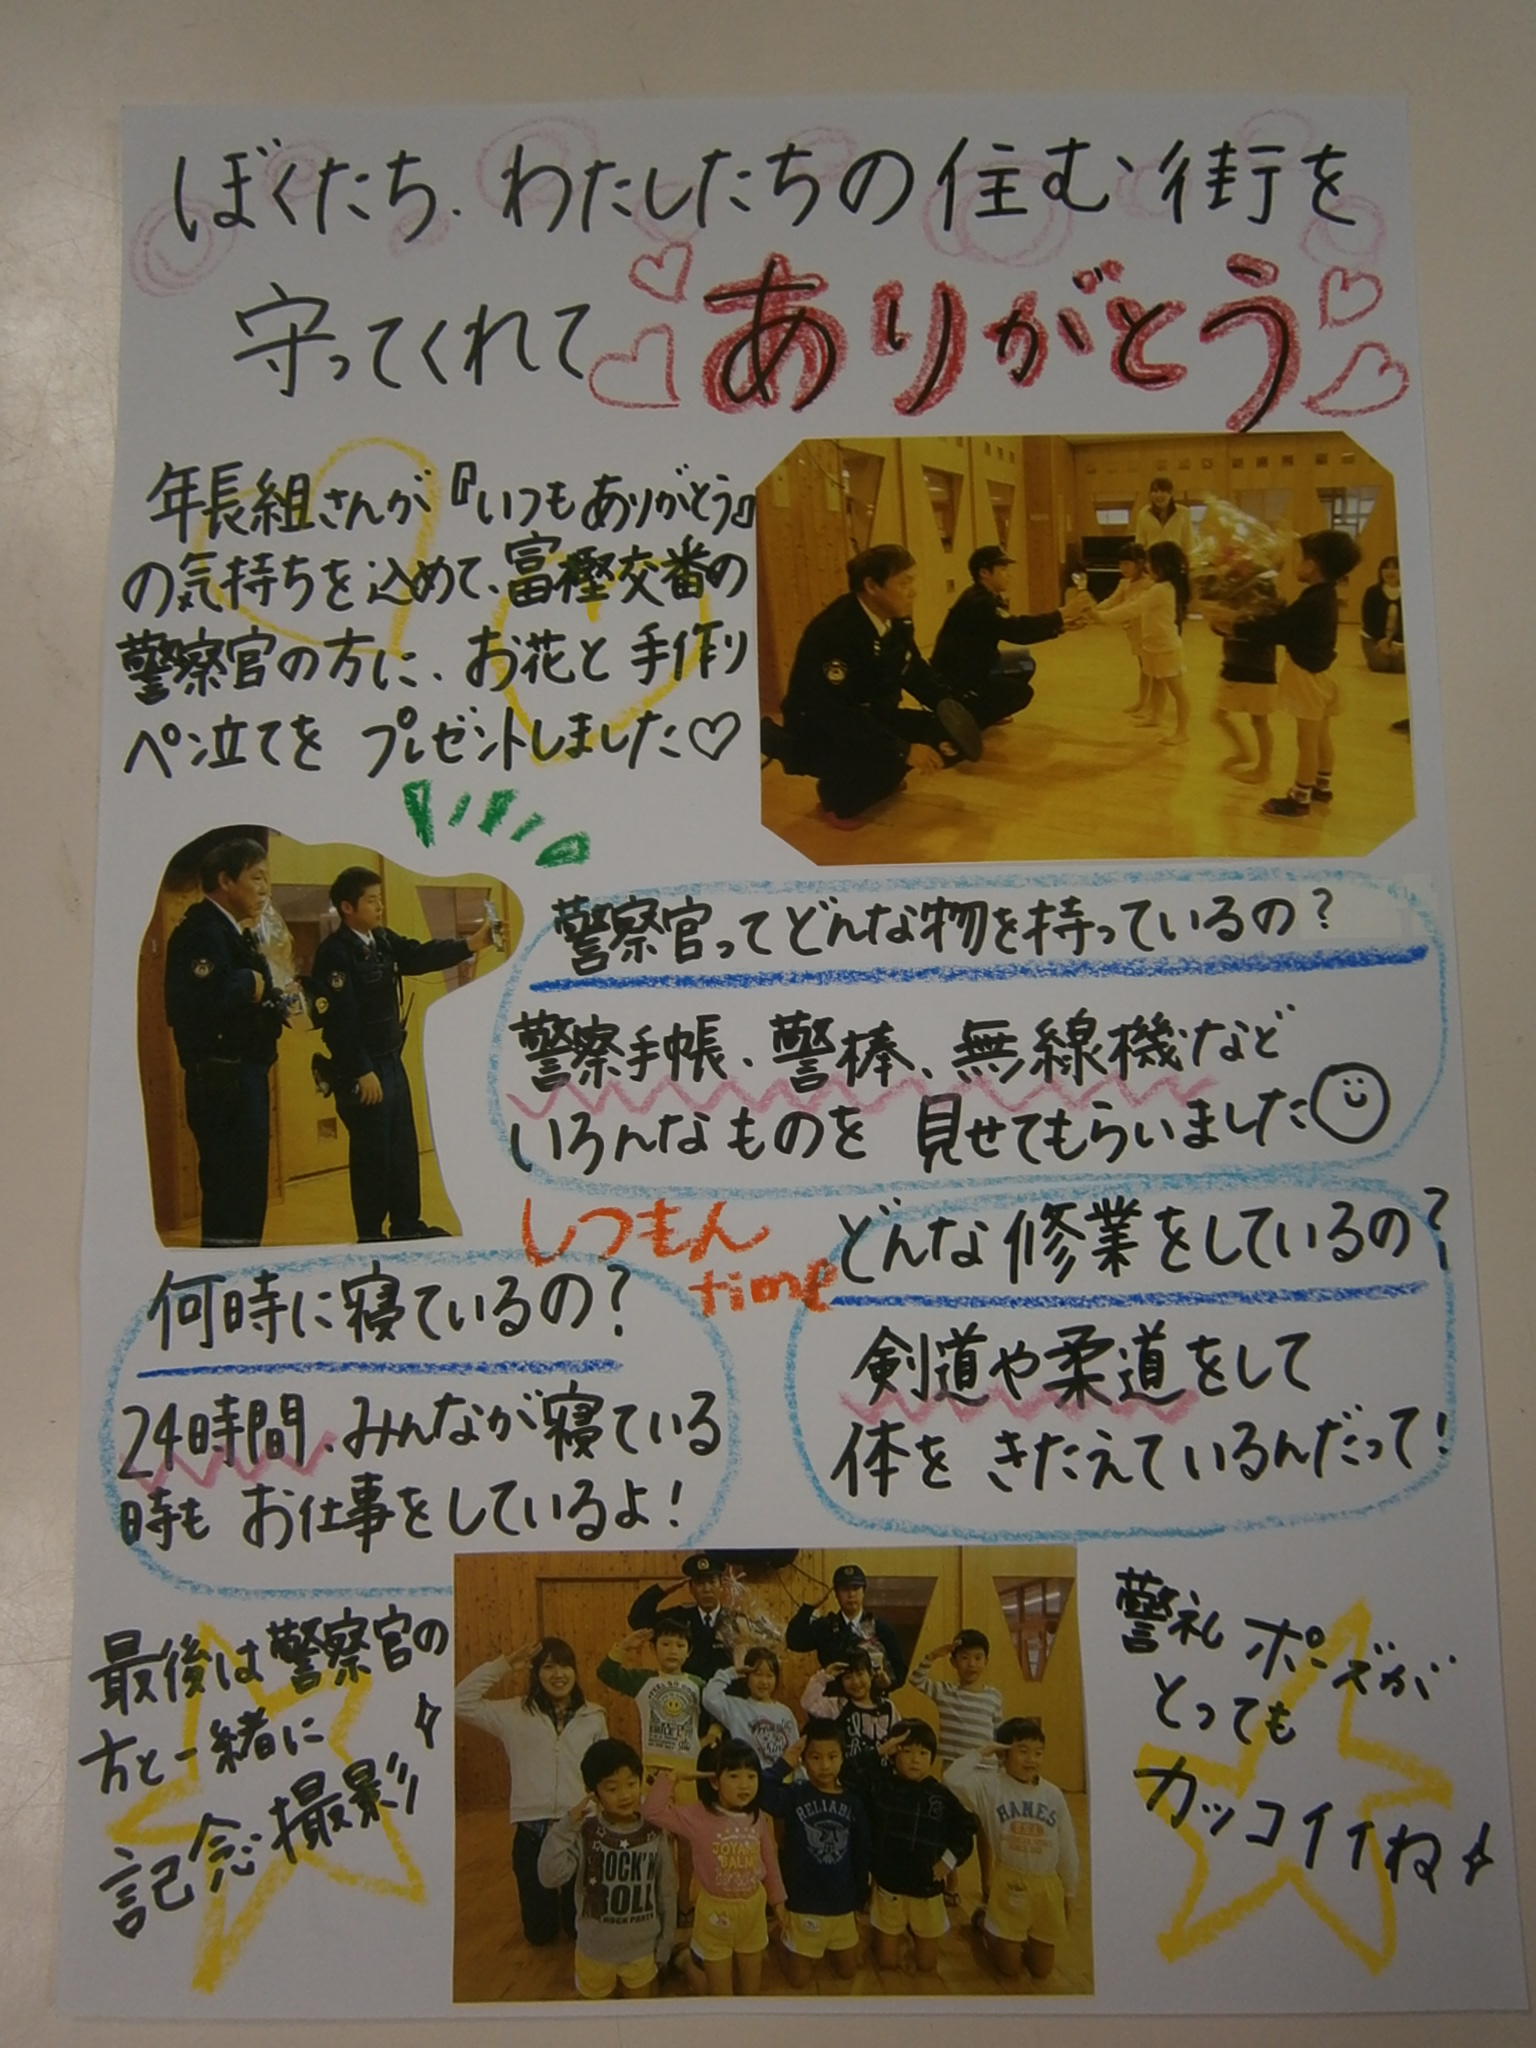 ぼくたち、わたしたちの住む街を
守ってくれて ありがとう
年長組さんが『いつもありがとう』
の気持ちを込めて、富樫交番の
警察官の方に、お花と手作り
ペン立てを プレゼントしました♡
警察官ってどんな物を持っているの?
警察手帳、警棒、無線機など
いろんなものを 見せてもらいました
しつもん
time
どんな修業をしているの?
剣道や柔道をして
体を きたえているんだって!
何時に寝ているの?
24時間、みんなが寝ている
時も お仕事をしているよ!
最後は警察官の
方と一緒に
記念撮影
警礼 ポーズが
とっても
カッコイイね
ROCK'N
ROLL
ROCK PARTY
JOYAN
BALM
RELIABL
HANES